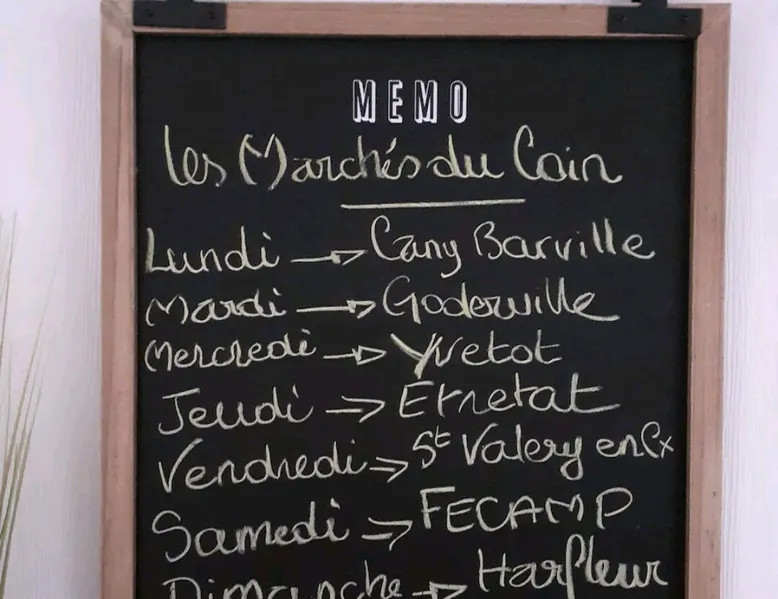 MEMO
Les Marchés du Coin
Lundi → Cany Barville
Mardi → Goderville
Mercredi → Yvetot
Jeudi → Etretat
Vendredi → St Valery en Cx
Samedi → FECAMP
Dimanche → Harfleur